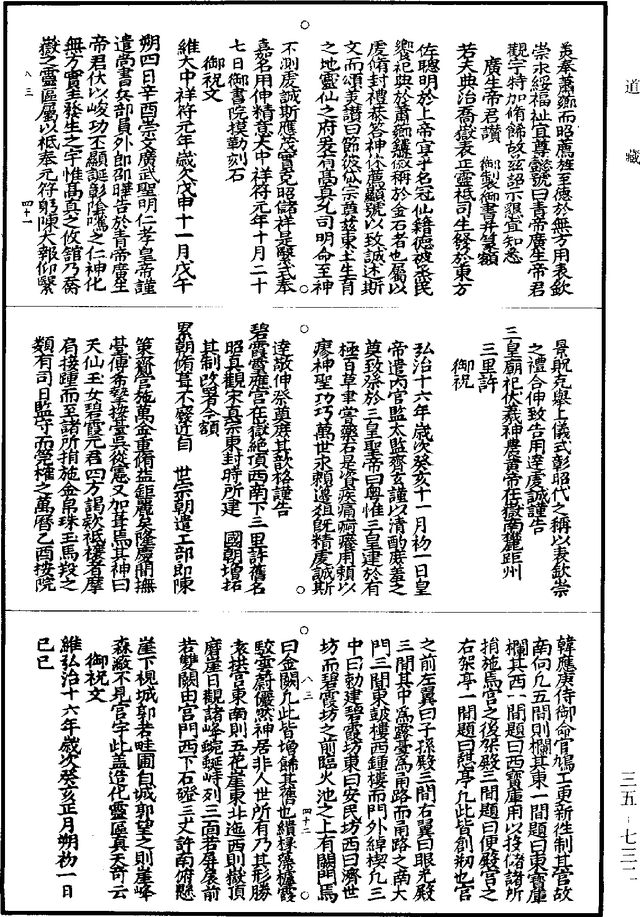 道藏
夷奉蕭薌而昭薦旌至德於無方用表欽
崇永綏福祉宜尊懿號曰青帝廣生帝君
觀宇特加脩飾故茲詔示想宜知悉
廣生帝君讚 御製御書并篆額
若夫典治喬嶽表正靈祇司生發於東方
佐聰明於上帝宜乎名冠仙籍德被烝民
饗祀典於蕭薌鑱徽稱於金石者也屬以
虔脩封禮恭荅神休薦顯號以致誠述斯
文而頌美讚曰節彼岱宗奠茲東土生育
之地靈仙之府爰有高真允司明命至神
不測虔誠斯應茂實克昭儲祥是繫式奉
嘉名用伸精意大中祥符元年十月二十
七日御書院摸勒刻石
御祝文
維大中祥符元年歲次戊申十一月戊午
朔四日辛酉崇文廣武聖明仁孝皇帝謹
遣尚書兵部員外郎邵曄告於青帝廣生
帝君伏以峻功不顯誕彰陰隲之仁神化
無方實主發生之宇惟高真之攸館乃喬
嶽之靈區屬以祗奉元符躬陳大報仰繫
八三 四十一
景貺克舉上儀式彰昭代之稱以表欽崇
之禮合伸致告用達虔誠謹告
三皇廟祀伏羲神農黃帝在嶽南麓距州
三里許
御祝
弘治十六年歲次癸亥十一月初一日皇
帝遣內官監太監齊玄謹以清酌庶羞之
奠致祭於三皇聖帝曰粵惟三皇建於有
極百草甫嘗藥石是資疾痛疴癢用賴以
瘳神聖功巧萬世永賴邊徂既精虔誠斯
達敬伸祭奠庶其歆格謹告
碧霞靈應宮在嶽絕頂西南下三里許舊名
昭真觀宋真宗東封時所建 國朝增拓
其制改署今額
累朝脩葺不廢近自 世宗朝遣工部郎陳
策齋官施萬金重脩益鉅麗矣隆慶間撫
臺傅希摯按臺吳從憲又加葺焉其神曰
天仙玉女碧霞元君四方謁款祗禳者摩
肩接踵而至諸所捐施金帛珠玉馬羖之
類有司日監守而筦榷之萬曆乙酉按院
韓應庚侍御命官鳩工更新徃制其宮故
南向凡五間則欄其東一間題曰東寶庫
欄其西一間題曰西寶庫用以投儲諸所
捐施焉宮之後架殿三間題曰便殿宮之
右架亭一間題曰憩亭凡此皆創剏也宮
之前左翼曰子孫殿三間右翼曰眼光殿
三間其中為露臺為甬路而甬路之南大
門三間東皷樓西鍾樓而門外綽楔凡三
中曰勅建碧霞坊東曰安民坊西曰濟世
坊而碧霞坊之前臨火池之上有闕門焉
八三 四十二
曰金闕凡此皆增餙其舊也繢椽藻櫨霞
駮雲蔚儼然神居非人世所有乃其形勝
袁拱宮東南則五花崖東北迤西則嶽頂
磨崖日觀諸峰蜿蜒峙列三面若屏扆前
若雙闕由宮門西下石磴三丈許南俯懸
崖下視城郭若畦圃自城郭望之則崖峰
森蔽不見宮宇此盖造化靈區真天奇云
御祝文
維弘治十六年歲次癸亥正月朔初一日
己巳
三五-七三二